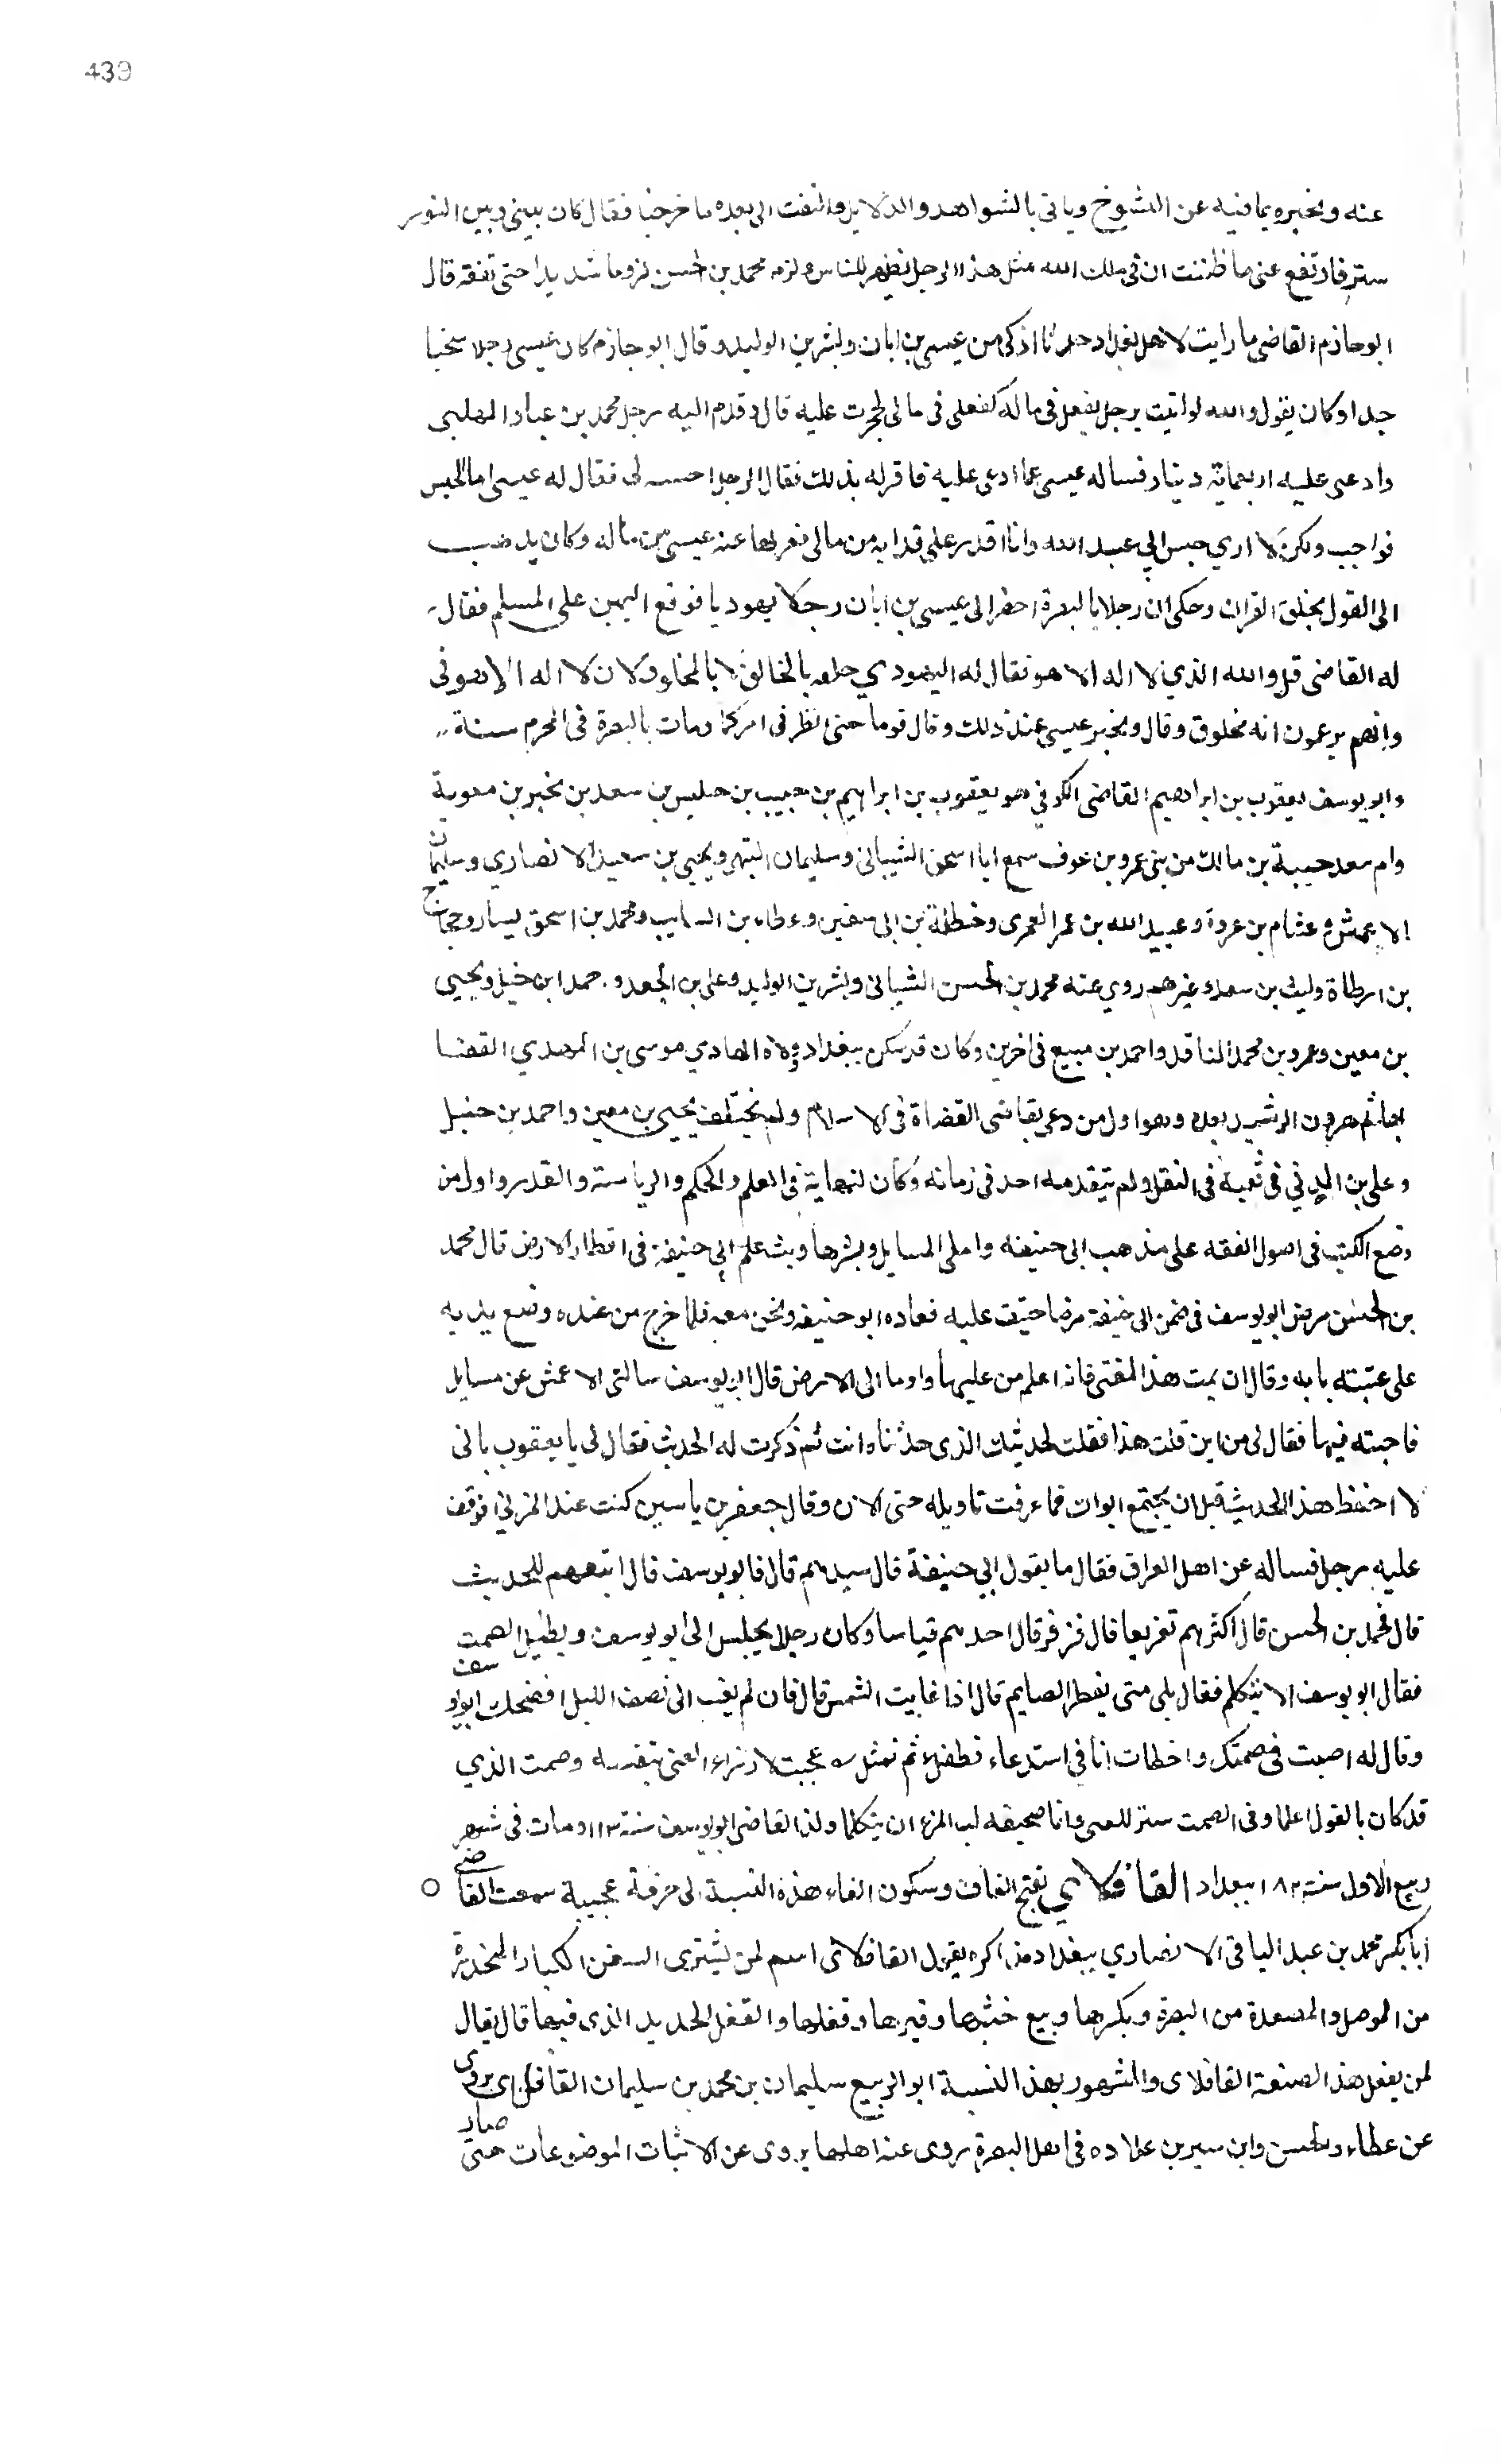 439
عنه ويخبره بما فيه عن الشيوخ وياتي بالشواهد والدلايل فالتفت الى بعده ما خرجنا فقال كان بيني وبين النور
ستر فارتفع عني ما ظننت ان في ملك الله مثل هذا الرجل يظهر للناس ولزم محمد بن الحسن لزوما شديدا حتى تفقه قال
ابو حازم القاضي ما رايت لاهل بغداد حدثا اذكى من عيسى بن ابان وبشر بن الوليد وقال ابو حازم كان عيسى رجلا سخيا
جدا وكان يقول والله لو اتيت برجل يفعل في ماله كفعلي في مالي لحجرت عليه قال وقدم اليه رجل محمد بن عباد المهلبي
وادعى عليه اربعمائة دينار فساله عيسى عما ادعى عليه فاقر له بذلك فقال الرجل احبسه لي فقال له عيسى اما الحبس
فواجب ولكن لا ارى حبس ابي عبد الله وانا اقدر على فدايه من مالي فغرمها عنه عيسى من ماله وكان يذهب
الى القول بخلق القران وحكى ان رجلا بالبصرة احضر الى عيسى بن ابان رجلا يهوديا فوقع اليمين على المسلم فقال
له القاضي قل والله الذي لا اله الا هو فقال له اليهودي حلفه بالخالق لا بالمخلوق لان لا اله الا هو في
وانهم يزعمون انه مخلوق وقال وتحير عيسى عند ذلك وقال قوما حتى انظر في امركما ومات بالبصرة في المحرم سنة
وابو يوسف يعقوب بن ابراهيم القاضي الكوفي هو يعقوب بن ابراهيم بن حبيب بن حليس بن سعد بن بخير بن معوية
وام سعد حبيبة بن مالك من بني عمرو بن عوف سمع ابا اسحق الشيباني وسليمان التيمي ويحيى بن سعيد الانصاري وسليمان
الاعمش وهشام بن عروة وعبيد الله بن عمر العمري وحنظلة بن ابي سفين وعطاء بن السايب ومحمد بن اسحق يسار وحجاج
بن ارطاة وليث بن سعد وغيرهم روى عنه محمد بن الحسن الشيباني وبشر بن الوليد وعلي بن الجعد واحمد ابن حنبل ويحيى
بن معين وعمرو بن محمد الناقد واحمد بن منيع في اخرين وكان قد سكن ببغداد وولاه الهادي موسى بن المهدي القضا
بها ثم هرون الرشيد بعده وهو اول من دعي بقاضي القضاة في الاسلام ولم يختلف يحيى بن معين واحمد بن حنبل
وعلي بن المديني في ثقته في النقل ولم يتقدمه احد في زمانه وكان لنهاية في العلم والحكم والرياسة والقدر واول من
وضع الكتب في اصول الفقه على مذهب ابي حنيفة واملى المسايل ونشرها وبث علم ابي حنيفة في اقطار الارض قال محمد
بن الحسن مرض ابو يوسف في زمن ابي حنيفة مرضا خيف عليه فعاده ابو حنيفة ونحن معه فلما خرج من عنده وضع يديه
على عتبته بابه وقال ان يمت هذا الفتى فانه اعلم من عليها واوما الى الارض قال ابو يوسف سالني الاعمش عن مسايل
فاجبته فيها فقال لي من اين قلت هذا فقلت لحديثك الذي حدثنا وانت ثم ذكرت له الحديث فقال لي يا يعقوب باني
لا احفظ هذا الحديث قبل ان يجتمع ابوات فما عرفت تاويله حتى الان وقال جعفر بن ياسين كنت عند المزني فوقف
عليه رجل فساله عن اهل العراق فقال ما يقول ابي حنيفة قال سيدهم قال فابو يوسف قال اتبعهم للحديث
قال فمحمد بن الحسن قال اكثرهم تفريعا قال فزفر قال احدهم قياسا وكان رجلا يجلس الى ابو يوسف ويطيل الصمت
فقال ابو يوسف الا تتكلم فقال بلى متى يفطر الصايم قال اذا غابت الشمس قال فان لم يغب الى نصف الليل فضحك ابو يوسف
وقال له اصبت في صمتك واخطات انا في استدعاء نطقك ثم تمثل عجبت لازراء العيي بنفسه وصمت الذي
قد كان بالقول اعلما وفي الصمت ستر للعيي وانما صحيفة لب المرء ان يتكلما ولد القاضي ابو يوسف سنة ١١٣ ومات في شهر
ربيع الاول سنة ١٨٢ ببغداد القافلاي بفتح القاف وسكون الفاء هذه النسبة الى حرفة عجيبة سمعت القاضي
ابا بكر محمد بن عبد الباقي الانصاري ببغداد مذاكره يقول القافلاى اسم لمن يشترى السفن الكبار المنحدرة
من الموصل والمصعدة من البصرة ويكسرها ويبيع خشبها وقيرها وقفلها والقفل الحديد الذى فيها قال يقال
لمن يفعل هذا الصنعة القافلاى والمشهور بهذا النسبة ابو الربيع سليمان بن محمد بن سليمان القافلاى يروى
عن عطاء والحسن وابن سيرين عداده في اهل البصرة روى عنه اهلها يروى عن الاثبات الموضوعات حتى صار